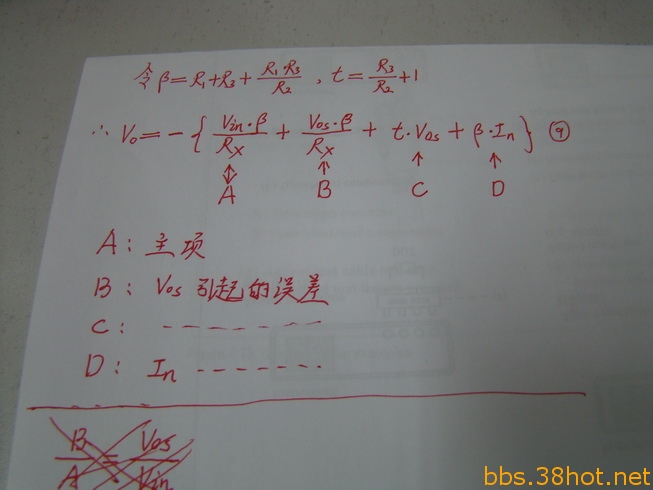 令 β=R₁+R₃+ R₁·R₃/R₂ , t= R₃/R₂ +1
∴ V₀=-{ Vin·β/Rx + Vos·β/Rx + t·Vos + β·In } ⑨
A B C D
A: 主项
B: Vos 引起的误差
C: --------
D: In -------
B/A = Vos/Vin
bbs.38hot.net